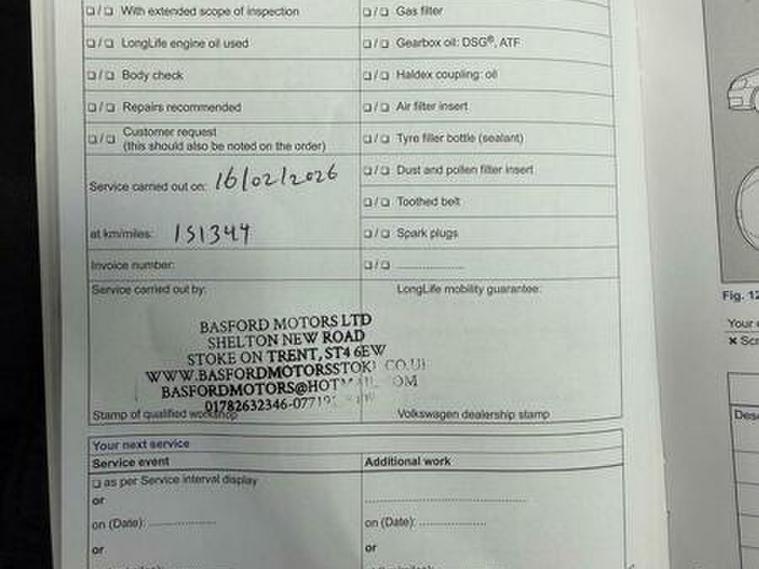 ❑ / ❑ With extended scope of inspection
❑ / ❑ LongLife engine oil used
❑ / ❑ Body check
❑ / ❑ Repairs recommended
❑ / ❑ Customer request
(this should also be noted on the order)
Service carried out on: 16/02/2026
at km/miles: 151344
Invoice number:
Service carried out by:
BASFORD MOTORS LTD
SHELTON NEW ROAD
STOKE ON TRENT, ST4 6EW
WWW.BASFORDMOTORSSTOK CO.U
BASFORDMOTORS@HOTMAIL OM
01782632346-07719
Stamp of qualified workshop
❑ / ❑ Gas filter
❑ / ❑ Gearbox oil: DSG®, ATF
❑ / ❑ Haldex coupling: oil
❑ / ❑ Air filter insert
❑ / ❑ Tyre filler bottle (sealant)
❑ / ❑ Dust and pollen filter insert
❑ / ❑ Toothed belt
❑ / ❑ Spark plugs
❑ / ❑ ....................
LongLife mobility guarantee:
Volkswagen dealership stamp
Your next service
Service event
❑ as per Service interval display
or
on (Date): ....................
or
Additional work
..................................................
on (Date): ....................
or
Fig. 12
Your
× Scr
Desc